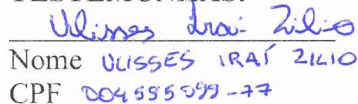 TESTEMUNHAS:
Ulisses Iraí Zilio
Nome ULISSES IRAÍ ZILIO
CPF 004555099-77